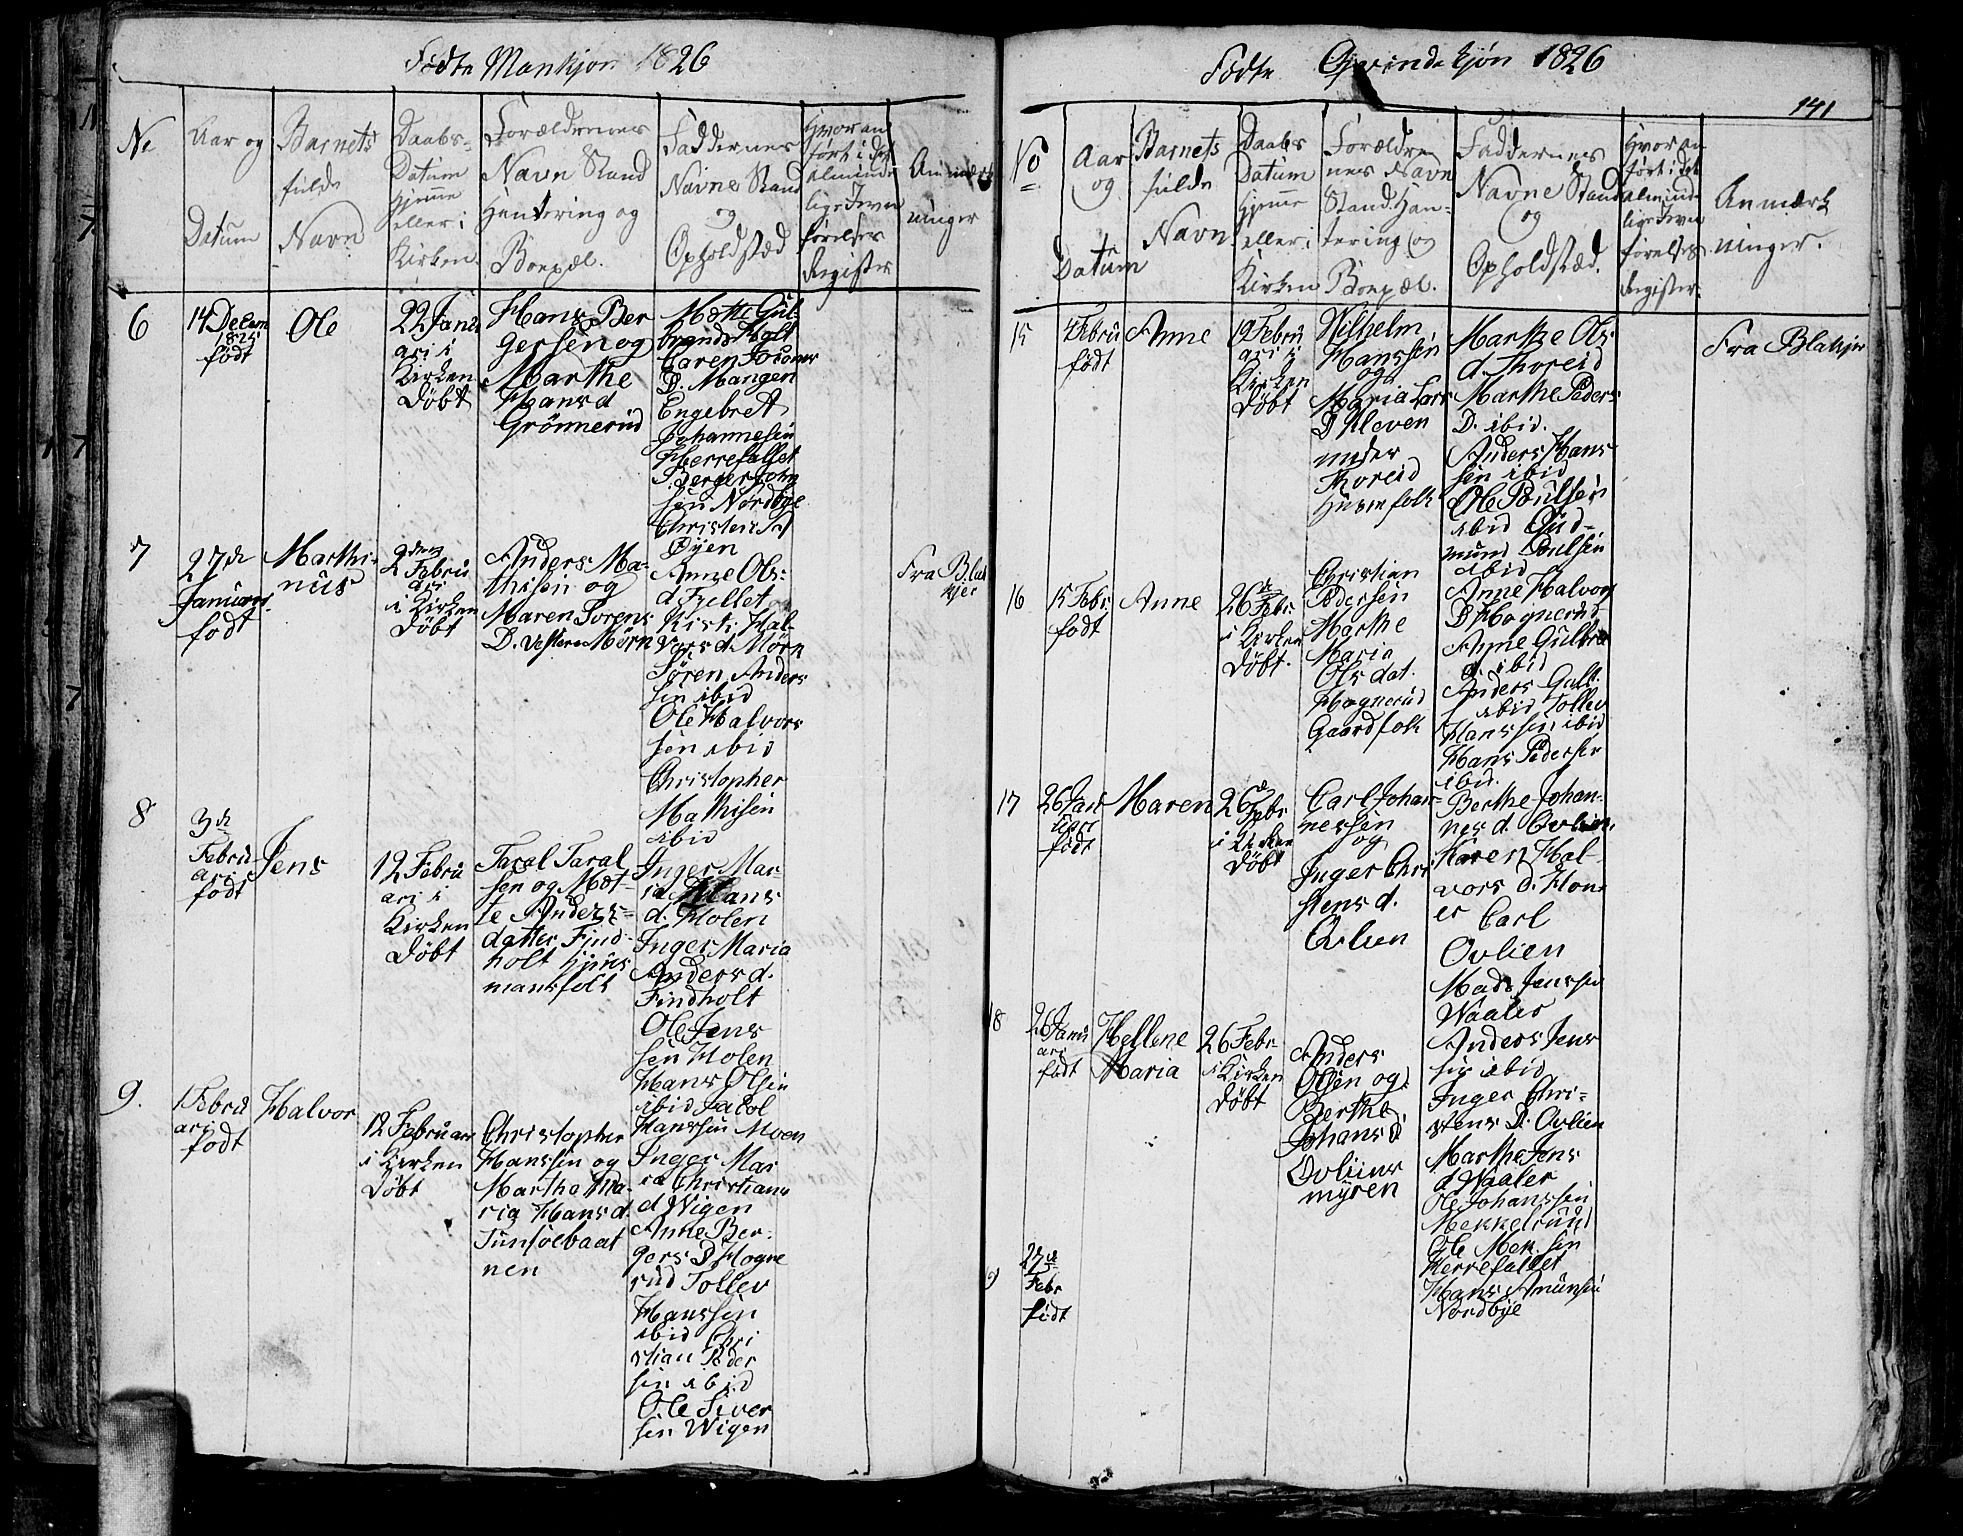 Födte Mankjøn 1826
No
Aar og
Datum
Barnets
fulde
Navn
Daabs-
Datum
hjemme
eller i
Kirken
Forældrenes
Navn Stand
Handtering og
Boepæl.
Faddernes
Navne Stand
og
Opholdstæd
Hvor an
ført i det
alminde
lige Jevn
førelses
Register
Anmærk
ninger
6
14 Decem
1825
født
Ole
22 Janu
ari i
Kirken
Døbt
Hans Ber
gersen og
Marthe
Hansd
Grönnerud
Mætte Gul-
brands Holt
Caren
D. Mangen
Engebret
Johannesen
Herrefallet
Berger John
sen Nordbye
Christen
Øyen
7
27de
Januari
født
Marthi-
nus
2den
Febru
ari
i Kirken
Døbt
Anders Ma-
thisen og
Maren Sorens
D. Vestere Mörn
Anne Ols-
d Fjellet
Kisti Hal-
vorsd. Mörn
Sören Anders
sen ibid
Ole Halvors
sen ibid
Christopher
Mathisen
ibid
Fra Blak
kjer
8
3de
Febru
ari
født
Jens
12 Febru
ari i
Kirken
Døbt
Taral Taral
sen og Mæt-
te Anders-
datter Find-
holt Huus
mansfolk
Inger Mar
ia Hans
d. Holen
Inger Maria
Andersd.
Findholt
Ole Jens
sen Holen
Hans Olsen
ibid Jacob
Hanssen Moen
9.
1 Febru
ari
født
Halvor
12 Februari
i Kirken
Døbt
Christopher
Hanssen og
Marthe Ma-
ria Hansd.
Tunsöebaat
nen
Inger Mar
ia Christians
d Wigen
Anne Ber-
gers D Hogne
rud Tollev
Hanssen
ibid Chri
stian Peder
sen ibid
Ole Siver
sen Wigen
Födte Qvindekjøn 1826
141
No
Aar
og
Datum
Barnets
fulde
Navn
Daabs
Datum
hjemme
eller i
Kirken
Forældre
nes Navn
Stand, Han-
tering og
Boepæl.
Faddernes
Navne Stand
og
Opholdstæd.
Hvor an
ført i det
alminde
lige Jevn
førelses
Register.
Anmærk
ninger.
15
4 Febru
født
Anne
19 Febru
ari i
Kirken
Døbt
Wilhelm
Hanssen
og
Maria Lars
D Kleven
under
Thoreid
Huusfolk
Marthe Ols
d. Thoreid
Marthe Peders
D. ibid.
Anders Hans-
sen ibid
Ole Poulsen
ibid Gud-
mund Poulsen
ibid
Fra Blakjer
16
15 Febr
født
Anne
26de Febr.
i Kirken
Døbt.
Christian
Pedersen
Marthe
Maria
Olsdat.
Hognerud
Gaardfolk
Anne Halvor
D Hognerud
Anne Gulbra
d. ibid
Anders Gulb.
ibid Tollev
Hanssen ibid
Hans Pedersen
ibid.
17
26 Janu
uari
født
Maren
26de
Febr
i Kirken
Døbt
Carl Johan-
nessen
og
Inger Chri
stens d.
Ovlien
Berthe Johan-
nes d. Ovlien.
Karen Hal-
vors d. Hon-
er Carl
Ovlien
Mads Jenssen
Waaler
18
26 Janu
ari
født
Hellene
Maria
26 Febr
i Kirken
Døbt
Anders
Olsen og
Berthe
Johans D
Ovliens
myren
Anders Jens
sen ibid
Inger Chri-
stens D. Ovlien
Marthe Jens
d Waaler
Ole Johanssen
Mekkelrund
Ole Mek. sen
Herrefallet
Hans Amunsen
Nordbye
9
27de
Febr
født